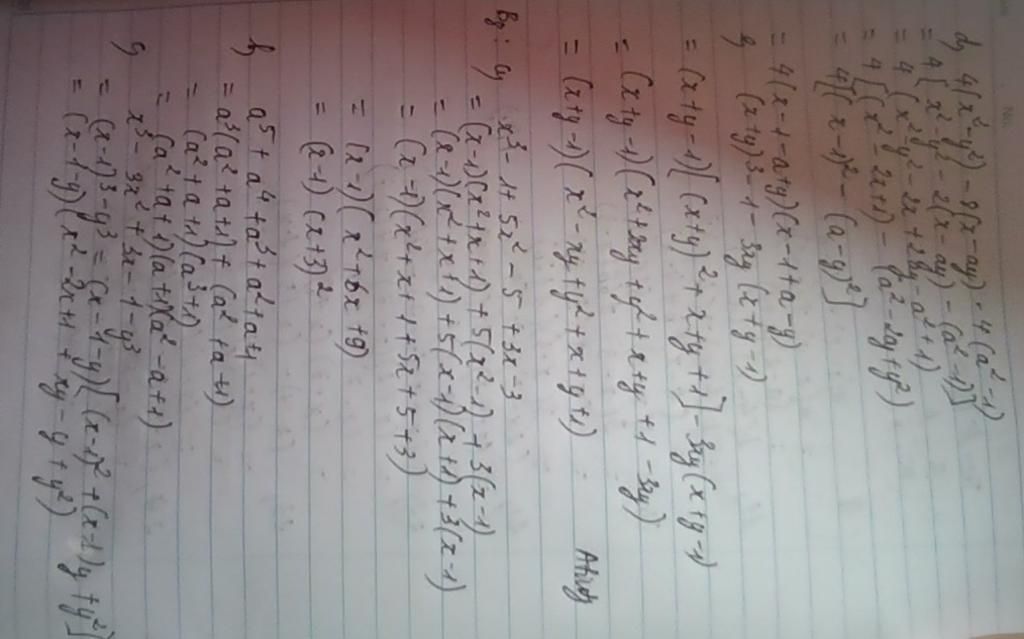 d) 4(x² - y²) - 8(x - ay) - 4(a² - 1)
= 4[x² - y² - 2(x - ay) - (a² - 1)]
= 4(x² - y² - 2x + 2ay - a² + 1)
= 4[(x² - 2x + 1) - (a² - 2ay + y²)
= 4[(x - 1)² - (a - y)²]
= 4(x - 1 - a + y)(x - 1 + a - y)
(x + y)³ - 1 - 3xy(x + y - 1)
= (x + y - 1)[(x + y)² + x + y + 1] - 3xy(x + y - 1)
= (x + y - 1)(x² + 2xy + y² + x + y + 1 - 3xy)
= (x + y - 1)(x² - xy + y² + x + y + 1)
a) x³ - 1 + 5x² - 5 + 3x - 3
= (x - 1)(x² + x + 1) + 5(x² - 1) + 3(x - 1)
= (x - 1)(x² + x + 1) + 5(x - 1)(x + 1) + 3(x - 1)
= (x - 1)(x² + x + 1 + 5x + 5 + 3)
= (x - 1)(x² + 6x + 9)
= (x - 1)(x + 3)²
b) a⁵ + a⁴ + a³ + a² + a + 1
= a³(a² + a + 1) + (a² + a + 1)
= (a² + a + 1)(a³ + 1)
= (a² + a + 1)(a + 1)(a² - a + 1)
c) x³ - 3x² + 3x - 1 - y³
= (x - 1)³ - y³ = (x - 1 - y)[(x - 1)² + (x - 1)y + y²]
= (x - 1 - y)(x² - 2x + 1 + xy - y + y²)